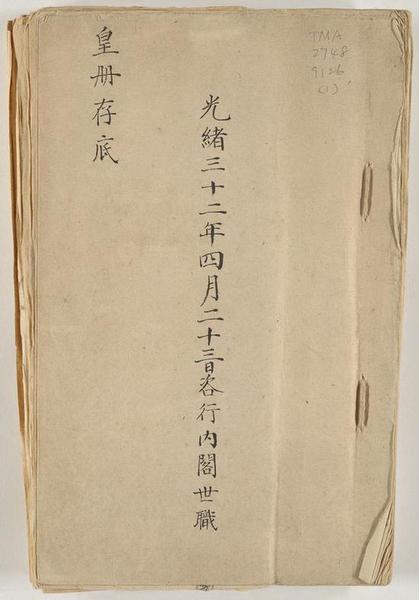 TMA
2748
9126
(1)
光緒三十二年四月二十三日咨行内閣世職
皇册存底